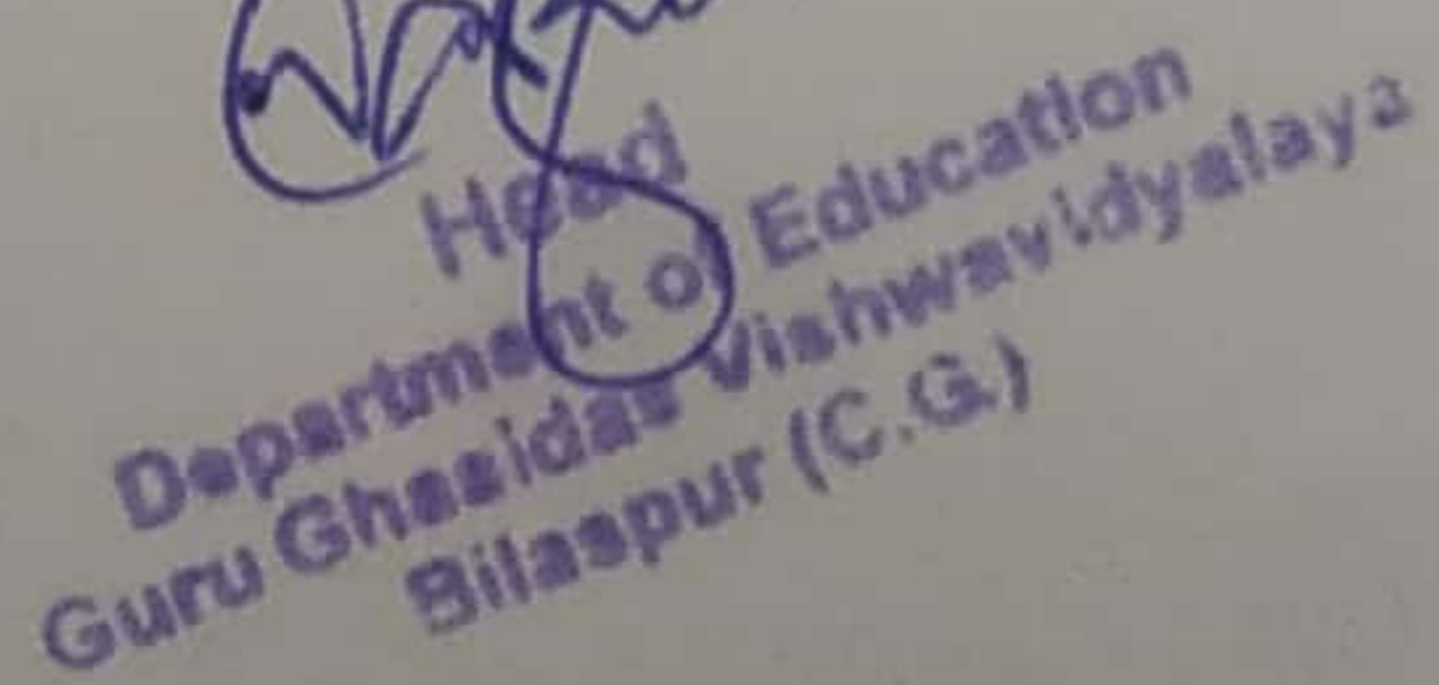 Head
Department of Education
Guru Ghasidas Vishwavidyalaya
Bilaspur (C.G.)